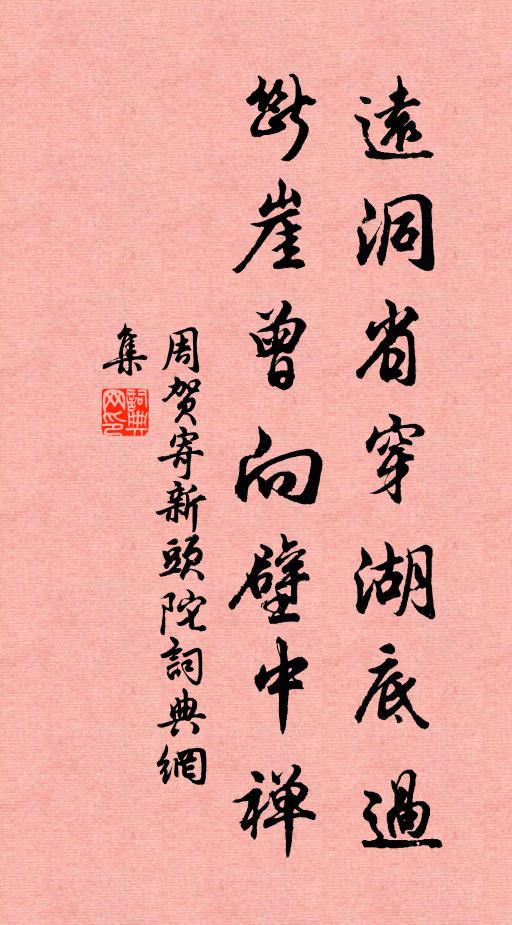 遠洞省穿湖底過
斷崖曾向壁中禅
周賀寄新頭陀詞典網
集
詞典
网印